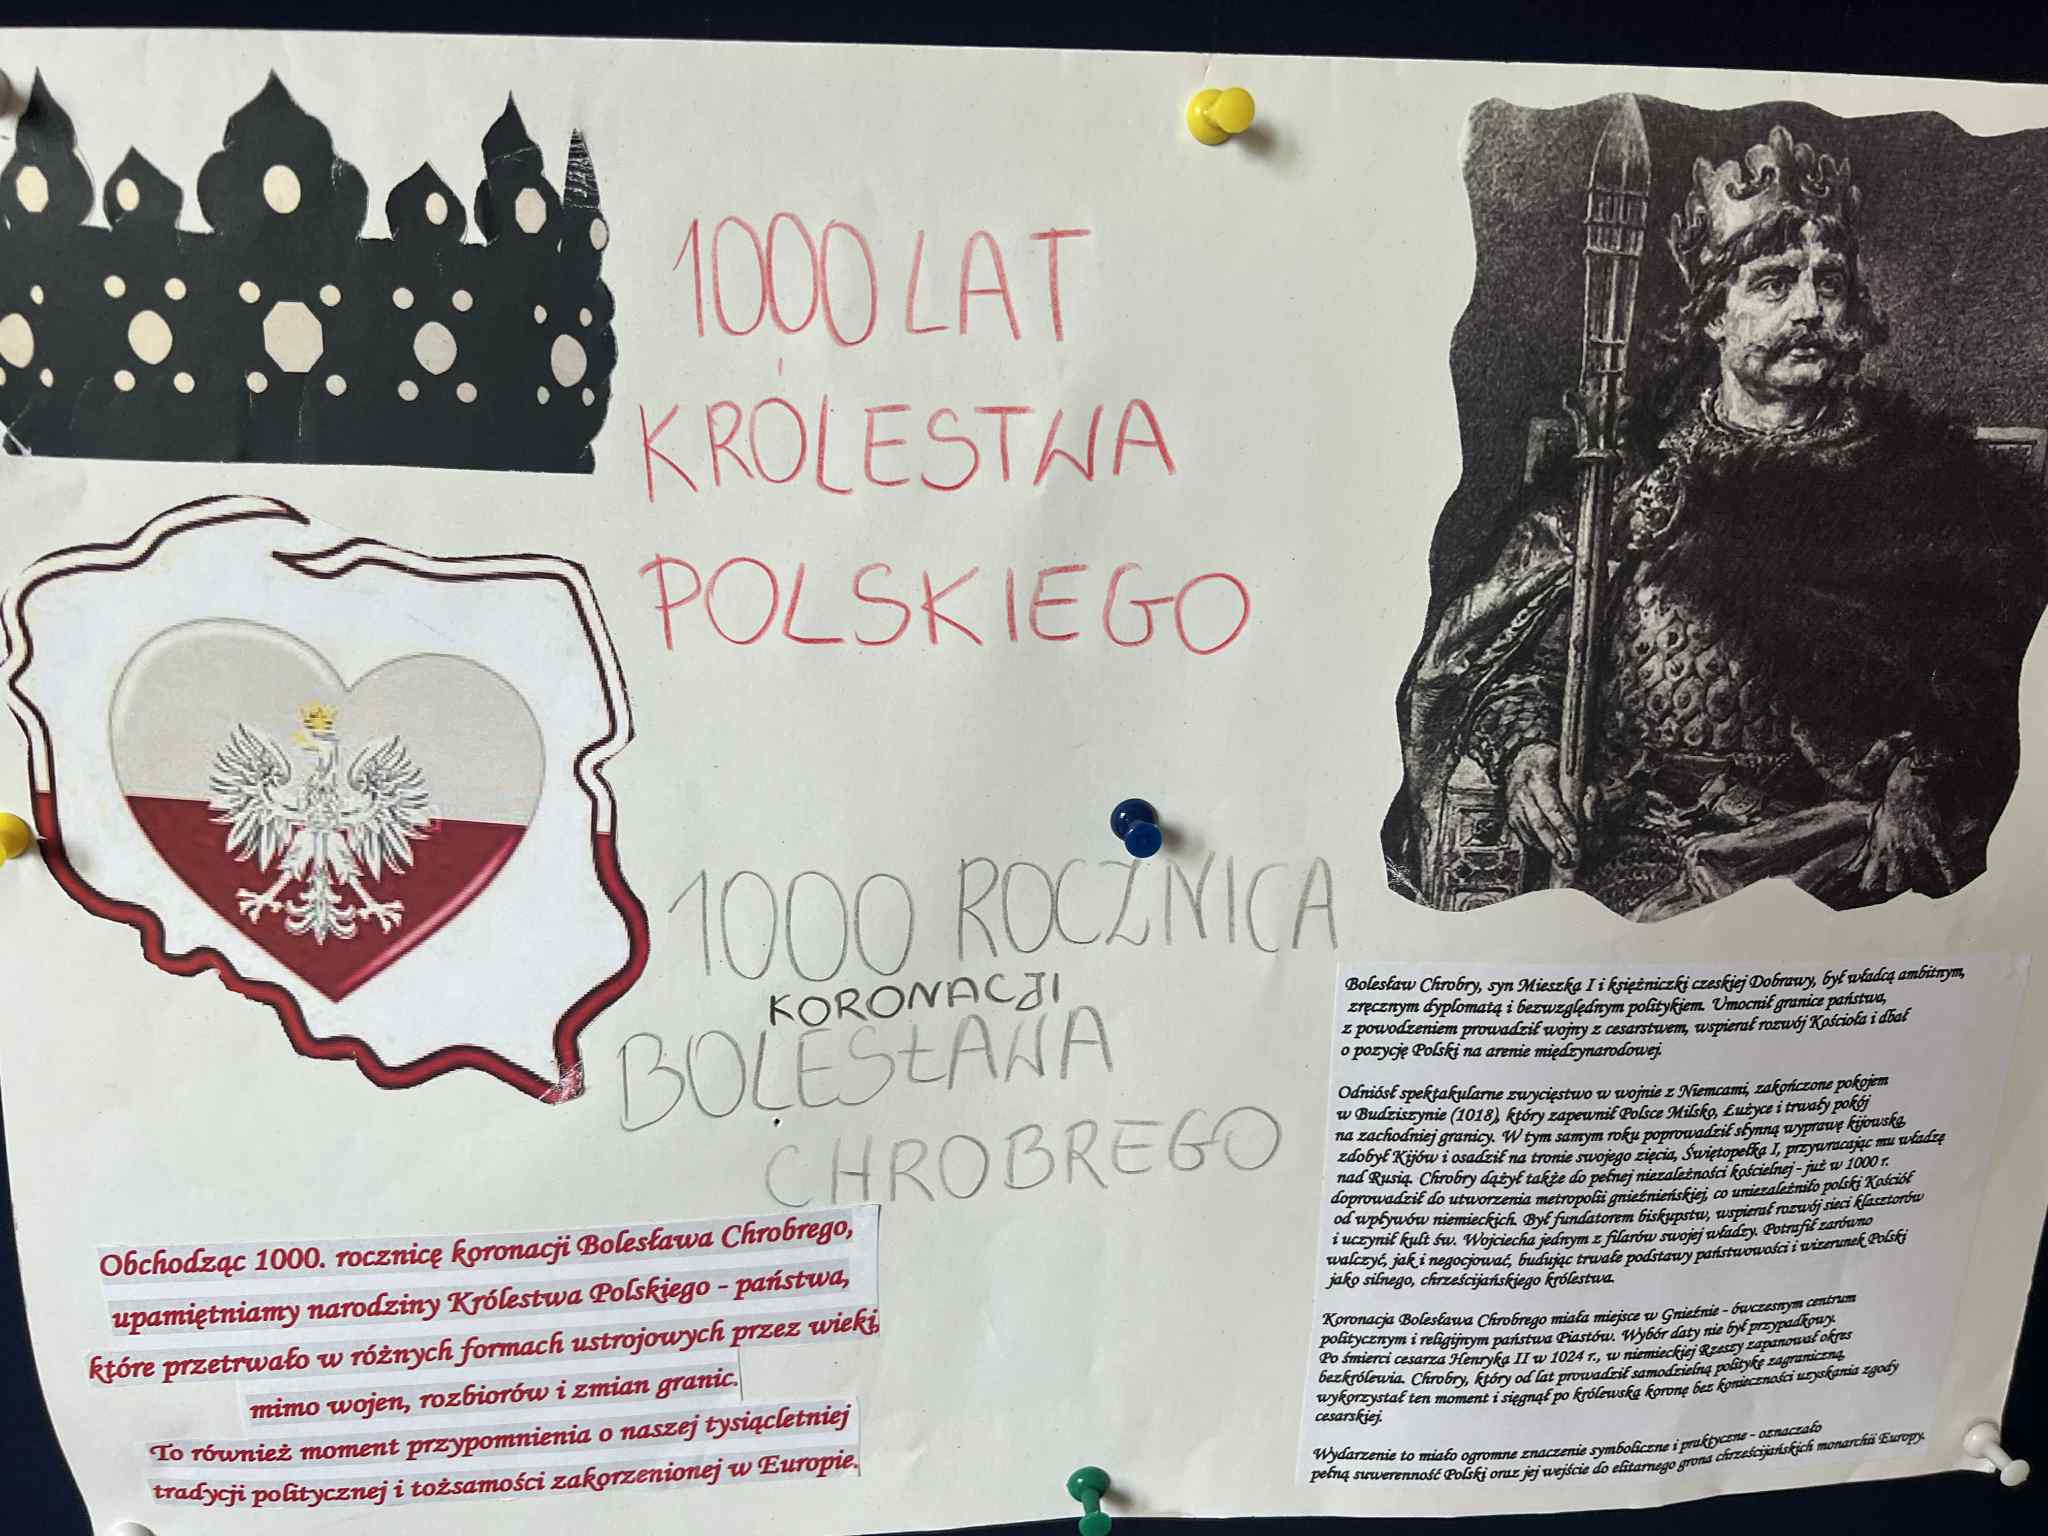 1000 LAT
KRÓLESTWA
POLSKIEGO
1000 ROCZNICA
KORONACJI
BOLESŁAWA
CHROBREGO
Obchodząc 1000. rocznicę koronacji Bolesława Chrobrego,
upamiętniamy narodziny Królestwa Polskiego - państwa,
które przetrwało w różnych formach ustrojowych przez wieki,
mimo wojen, rozbiorów i zmian granic.
To również moment przypomnienia o naszej tysiącletniej
tradycji politycznej i tożsamości zakorzenionej w Europie.
Bolesław Chrobry, syn Mieszka I i księżniczki czeskiej Dobrawy, był władcą ambitnym,
zręcznym dyplomatą i bezwzględnym politykiem. Umocnił granice państwa,
z powodzeniem prowadził wojny z cesarstwem, wspierał rozwój Kościoła i dbał
o pozycję Polski na arenie międzynarodowej.
Odniósł spektakularne zwycięstwo w wojnie z Niemcami, zakończone pokojem
w Budziszynie (1018), który zapewnił Polsce Milsko, Łużyce i trwały pokój
na zachodniej granicy. W tym samym roku poprowadził słynną wyprawę kijowską,
zdobył Kijów i osadził na tronie swojego zięcia, Świętopełka I, przywracając mu władzę
nad Rusią. Chrobry dążył także do pełnej niezależności kościelnej - już w 1000 r.
doprowadził do utworzenia metropolii gnieźnieńskiej, co uniezależniło polski Kościół
od wpływów niemieckich. Był fundatorem biskupstw, wspierał rozwój sieci klasztorów
i uczynił kult św. Wojciecha jednym z filarów swojej władzy. Potrafił zarówno
walczyć, jak i negocjować, budując trwałe podstawy państwowości i wizerunek Polski
jako silnego, chrześcijańskiego królestwa.
Koronacja Bolesława Chrobrego miała miejsce w Gnieźnie - ówczesnym centrum
politycznym i religijnym państwa Piastów. Wybór daty nie był przypadkowy.
Po śmierci cesarza Henryka II w 1024 r., w niemieckiej Rzeszy zapanował okres
bezkrólewia. Chrobry, który od lat prowadził samodzielną politykę zagraniczną,
wykorzystał ten moment i sięgnął po królewską koronę bez konieczności uzyskania zgody
cesarskiej.
Wydarzenie to miało ogromne znaczenie symboliczne i praktyczne - oznaczało
pełną suwerenność Polski oraz jej wejście do elitarnego grona chrześcijańskich monarchii Europy.